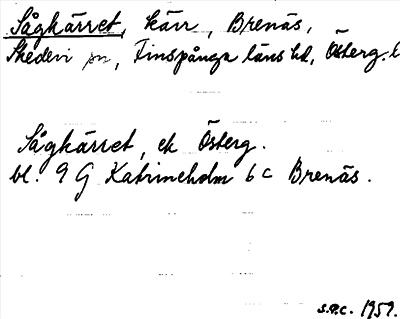 Sågkärret, kärr, Brenäs,
Skedevi sn, Finspånga läns hd, Österg. l
Sågkärret, ek Österg.
bl. 9 G Katrineholm 6 c Brenäs.
S.P.C. 1959.